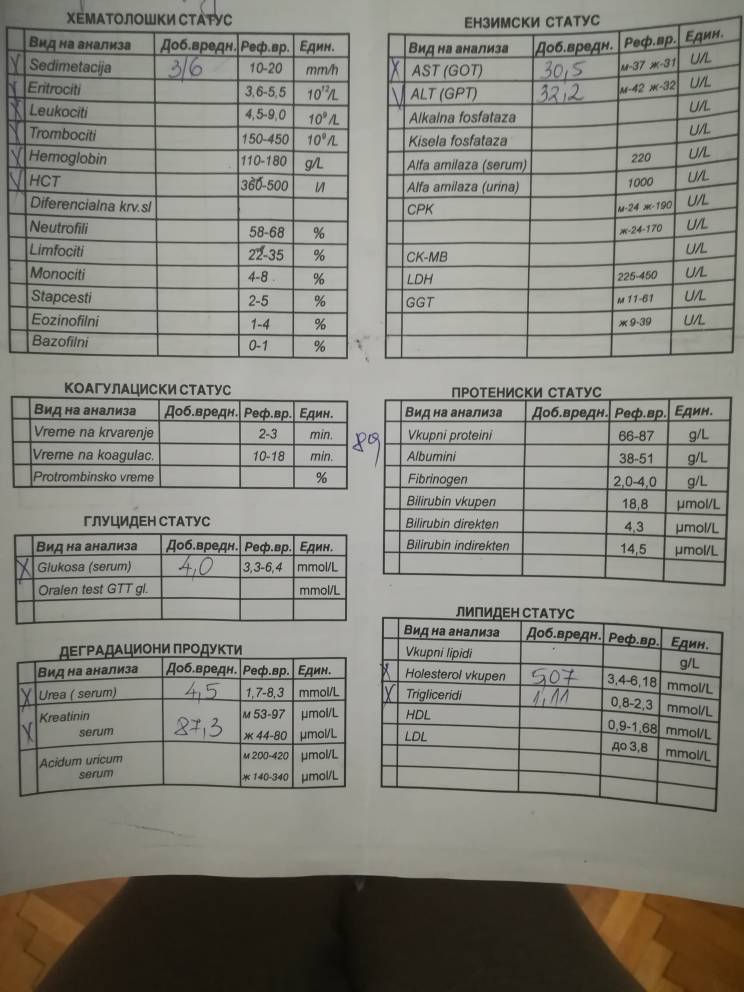 ХЕМАТОЛОШКИ СТАТУС
Вид на анализа Доб.вредн. Реф.вр. Един.
Sedimetacija 3/6 10-20 mm/h
Eritrociti 3,6-5,5 10¹²/L
Leukociti 4,5-9,0 10⁹/L
Trombociti 150-450 10⁹/L
Hemoglobin 110-180 g/L
HCT 360-500 l/l
Diferencialna krv.sl
Neutrofili 58-68 %
Limfociti 22-35 %
Monociti 4-8 %
Stapcesti 2-5 %
Eozinofilni 1-4 %
Bazofilni 0-1 %
ЕНЗИМСКИ СТАТУС
Вид на анализа Доб.вредн. Реф.вр. Един.
AST (GOT) 30,5 м-37 ж-31 U/L
ALT (GPT) 32,2 м-42 ж-32 U/L
Alkalna fosfataza U/L
Kisela fosfataza U/L
Alfa amilaza (serum) 220 U/L
Alfa amilaza (urina) 1000 U/L
CPK м-24 ж-190 U/L
ж-24-170 U/L
CK-MB U/L
LDH 225-450 U/L
GGT м 11-61 U/L
ж 9-39 U/L
КОАГУЛАЦИСКИ СТАТУС
Вид на анализа Доб.вредн. Реф.вр. Един.
Vreme na krvarenje 2-3 min.
Vreme na koagulac. 10-18 min.
Protrombinsko vreme %
ПРОТЕНИСКИ СТАТУС
Вид на анализа Доб.вредн. Реф.вр. Един.
Vkupni proteini 66-87 g/L
Albumini 38-51 g/L
Fibrinogen 2,0-4,0 g/L
Bilirubin vkupen 18,8 µmol/L
Bilirubin direkten 4,3 µmol/L
Bilirubin indirekten 14,5 µmol/L
ГЛУЦИДЕН СТАТУС
Вид на анализа Доб.вредн. Реф.вр. Един.
Glukosa (serum) 4,0 3,3-6,4 mmol/L
Oralen test GTT gl. mmol/L
ДЕГРАДАЦИОНИ ПРОДУКТИ
Вид на анализа Доб.вредн. Реф.вр. Един.
Urea ( serum) 4,5 1,7-8,3 mmol/L
Kreatinin м 53-97 µmol/L
serum 87,3 ж 44-80 µmol/L
Acidum uricum м 200-420 µmol/L
serum ж 140-340 µmol/L
ЛИПИДЕН СТАТУС
Вид на анализа Доб.вредн. Реф.вр. Един.
Vkupni lipidi g/L
Holesterol vkupen 5,07 3,4-6,18 mmol/L
Trigliceridi 1,11 0,8-2,3 mmol/L
HDL 0,9-1,68 mmol/L
LDL до 3,8 mmol/L